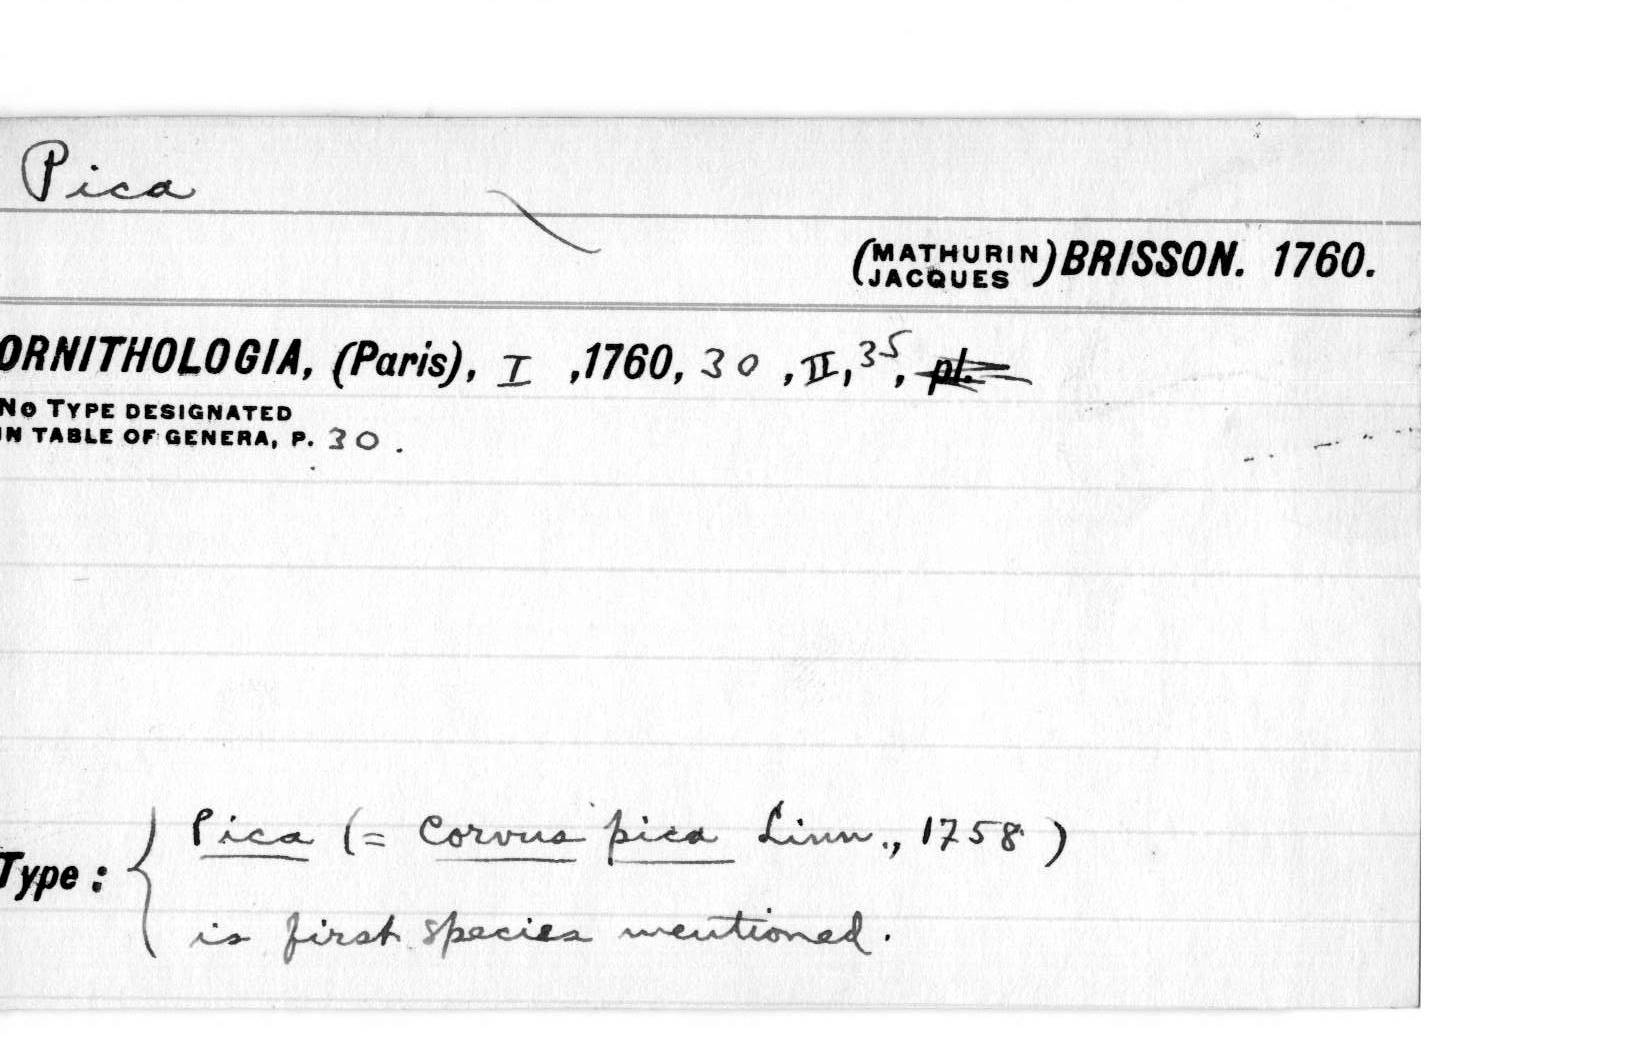 Pica
(MATHURIN JACQUES) BRISSON. 1760.
ORNITHOLOGIA, (Paris), I ,1760, 30 , II, 35, pl.
NO TYPE DESIGNATED
IN TABLE OF GENERA, P. 30.
Pica (= Corvus pica Linn., 1758)
Type:
is first species mentioned.